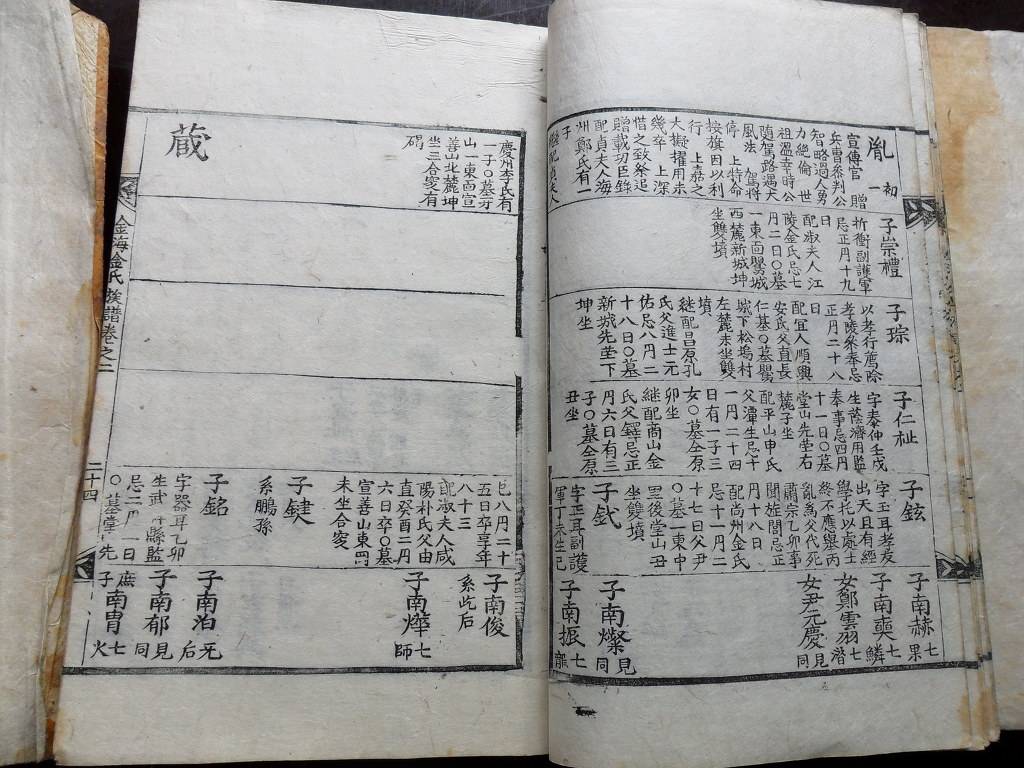 胤
初
一
宣傳官 贈
兵曹參判公
智略過人勇
力絶倫 世
祖溫幸時公
隨駕路遇大
風法 駕將
停 上特命
按旗因以利
行 上嘉之
大擬擢用未
幾卒 上深
惜之致祭追
贈載功臣錄
配貞夫人海
州鄭氏有一
子
継配貞夫人
子崇禮
折衝副護軍
忌正月十九
日
配淑夫人江
陵金氏忌七
月二日〇墓
一東面鷪城
西麓新城坤
坐雙墳
子琮
以孝行薦除
孝陵參奉忌
正月二十八
日
配宜人順興
安氏父直長
仁基〇墓鷪
城下松塢村
左麓未坐雙
墳
継配昌原孔
氏父進士二元
佑忌八月二
十八日〇墓
新城先塋下
坤坐
子仁祉
字泰仲壬戌
生蔭濟用監
奉事忌四月
十一日〇墓
堂山先塋右
麓子坐
配平山申氏
父濩生忌十
一月二十四
日有一子三
女〇墓金原
卯坐
継配商山金
氏父鐸忌正
月六日有三
子〇墓金原
丑坐
子鉉
字玉耳孝友
出天且有經
學托以處士
終不應擧丙
亂為父代死
肅宗乙卯事
聞㫌閭忌正
月十八日
配尚州金氏
忌十一月二
十七日父尹
〇墓一東中
里後堂山丑
坐雙墳
子釴
字正耳副護
軍丁未生己
子南赫 七果
子南奭 七鱗
女鄭雲翮 見潛
女尹元慶 見同
子南燦 見同
子南振 七龍
慶州李氏有
一子〇墓牙
山一東面宣
善山北麓坤
坐三合窆有
碣
巳八月二十
五日卒享年
八十三
配淑夫人咸
陽朴氏父由
直癸酉二月
六日卒〇墓
宣善山東岡
未坐合窆
子鍵
系鵬孫
子銘
字器耳乙卯
生武 縣監
忌二月一日
〇墓 先
子南俊
系此后
子南燁 七師
子南泊 旡后
子南郁 見同
庶子南胄 七火
蔵
金海金氏族譜卷之二
二十四